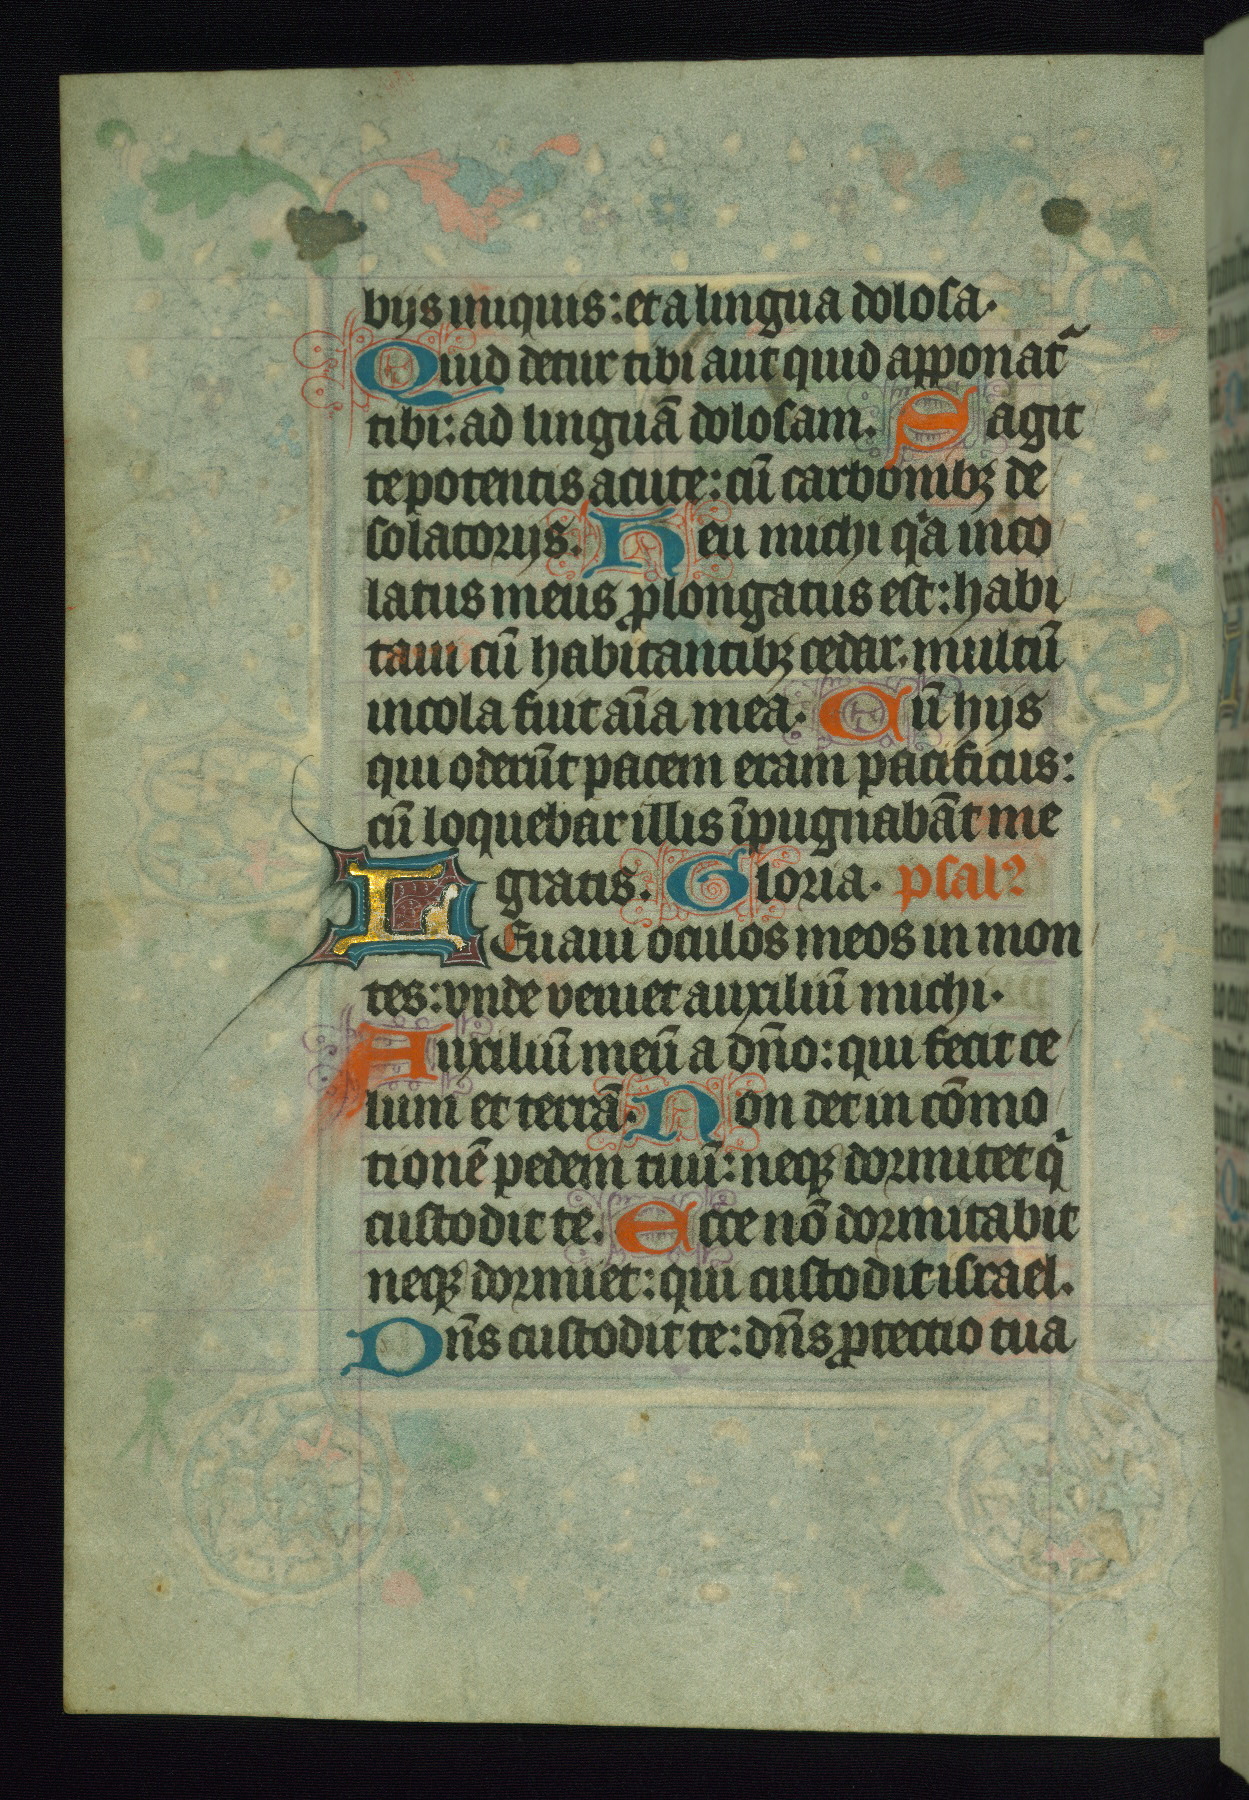 bijs iniquis: et a lingua dolosa.
Quid detur tibi aut quid apponat᷑
tibi: ad linguā dolosam. Sagit
te potentis acute: cū carbonibꝫ de
solatorijs. Heu michi qͥa inco
latus meus ꝓlongatus est: habi
taui cū habitantibꝫ cedar. multū
incola fuit aīa mea. Cū hijs
qui oderūt pacem eram pacificus:
cū loquebar illis īpugnabāt me
gratis. Gloria. psalꝰ
Leuaui oculos meos in mon
tes: vnde veniet auxiliū michi.
Auxiliū meū a dn̄o: qui fecit ce
lum et terrā. Non det in cōmo
tionē pedem tuū: neqꝫ dormitet qͥ
custodit te. Ecce nō dormitabit
neqꝫ dormiet: qui custodit israel.
Dn̄s custodit te: dn̄s ꝓtectio tua